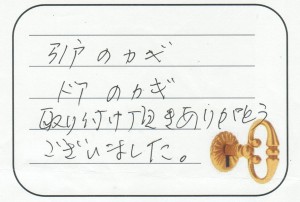 引戸のカギ
ドアのカギ
取り付け頂きありがとう
ございました。